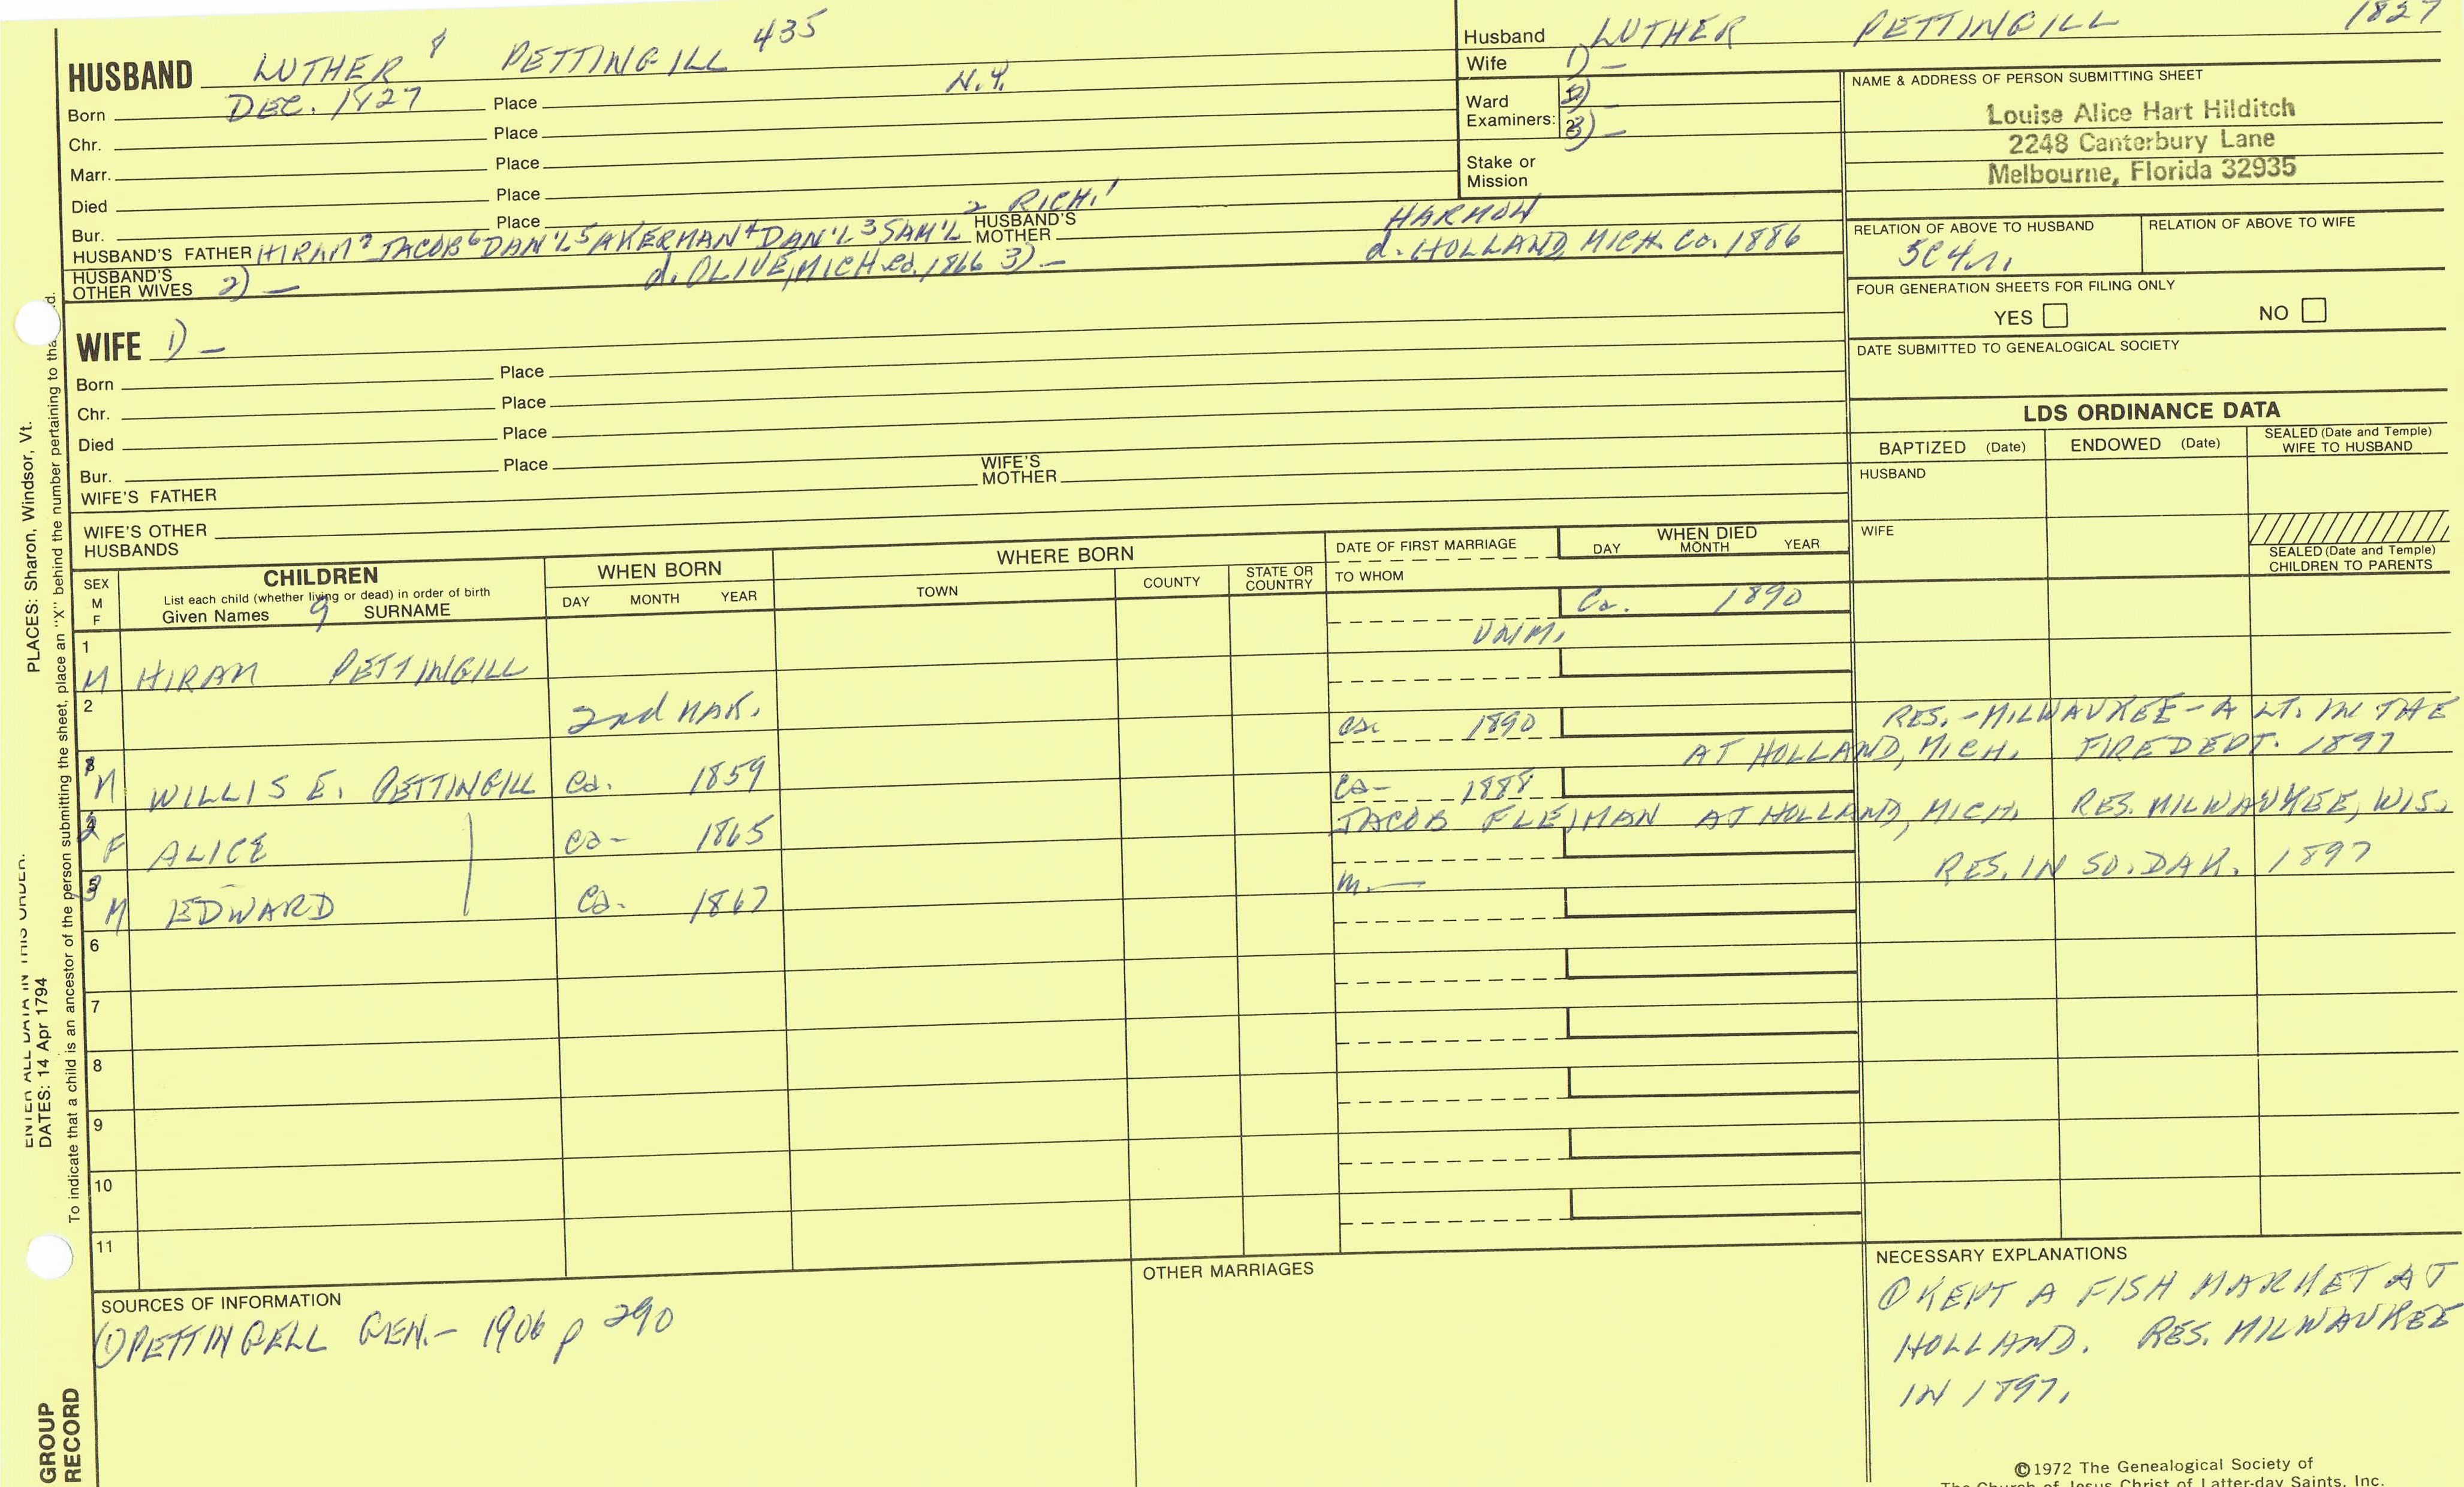 HUSBAND LUTHER 8 PETTINGILL 435
Born DEC. 1827 Place N.Y.
Chr. Place
Marr. Place
Died Place
Bur. Place
HUSBAND'S FATHER HIRAM 7 JACOB 6 DAN'L 5 AKERMAN 4 DAN'L 3 SAM'L 2 RICH. 1 HUSBAND'S MOTHER HARMON
HUSBAND'S OTHER WIVES 2) — d. OLIVE, MICH. ca. 1866 3) — d. HOLLAND, MICH. Ca. 1886
Husband LUTHER PETTINGILL 1827
Wife 1) —
Ward Examiners: 1. 2) 2. 3) —
Stake or Mission
NAME & ADDRESS OF PERSON SUBMITTING SHEET
Louise Alice Hart Hilditch
2248 Canterbury Lane
Melbourne, Florida 32935
RELATION OF ABOVE TO HUSBAND RELATION OF ABOVE TO WIFE
5C4r.
FOUR GENERATION SHEETS FOR FILING ONLY
YES NO
DATE SUBMITTED TO GENEALOGICAL SOCIETY
WIFE 1) —
Born Place
Chr. Place
Died Place
Bur. Place
WIFE'S FATHER WIFE'S MOTHER
WIFE'S OTHER HUSBANDS
LDS ORDINANCE DATA
BAPTIZED (Date) ENDOWED (Date) SEALED (Date and Temple) WIFE TO HUSBAND
HUSBAND
WIFE
SEALED (Date and Temple) CHILDREN TO PARENTS
SEX M F
CHILDREN
List each child (whether living or dead) in order of birth
Given Names 9 SURNAME
WHEN BORN
DAY MONTH YEAR
WHERE BORN
TOWN COUNTY STATE OR COUNTRY
DATE OF FIRST MARRIAGE
TO WHOM
WHEN DIED
DAY MONTH YEAR
1 M HIRAM PETTINGILL UNM. Ca. 1890
2 2nd MAR.
3 1 M WILLIS E. PETTINGILL Ca. 1859 ca. 1890 AT HOLLAND, MICH. RES. - MILWAUKEE - A LT. IN THE FIRE DEPT. 1897
4 2 F ALICE ca - 1865 ca - 1888 JACOB FLEJMAN AT HOLLAND, MICH. RES. MILWAUKEE, WIS.
5 3 M EDWARD Ca. 1867 m. — RES. IN SO. DAK. 1897
6
7
8
9
10
11
SOURCES OF INFORMATION
(1) PETTINGELL GEN. - 1906 p 290
OTHER MARRIAGES
NECESSARY EXPLANATIONS
① KEPT A FISH MARKET AT
HOLLAND. RES. MILWAUKEE
IN 1897.
©1972 The Genealogical Society of
The Church of Jesus Christ of Latter-day Saints, Inc.
PLACES: Sharon, Windsor, Vt.
ENTER ALL DATA IN THIS ORDER:
DATES: 14 Apr 1794
To indicate that a child is an ancestor of the person submitting the sheet, place an "X" behind the number pertaining to
GROUP
RECORD